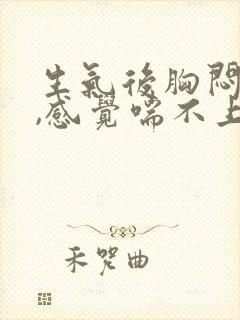 生氣後胸悶
,感覺喘不上
禾哭曲